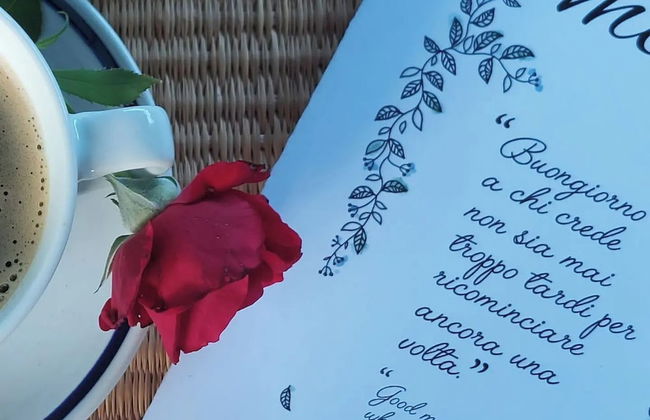 “Buongiorno
a chi crede
non sia mai
troppo tardi per
ricominciare
ancora una
volta.”
“Good